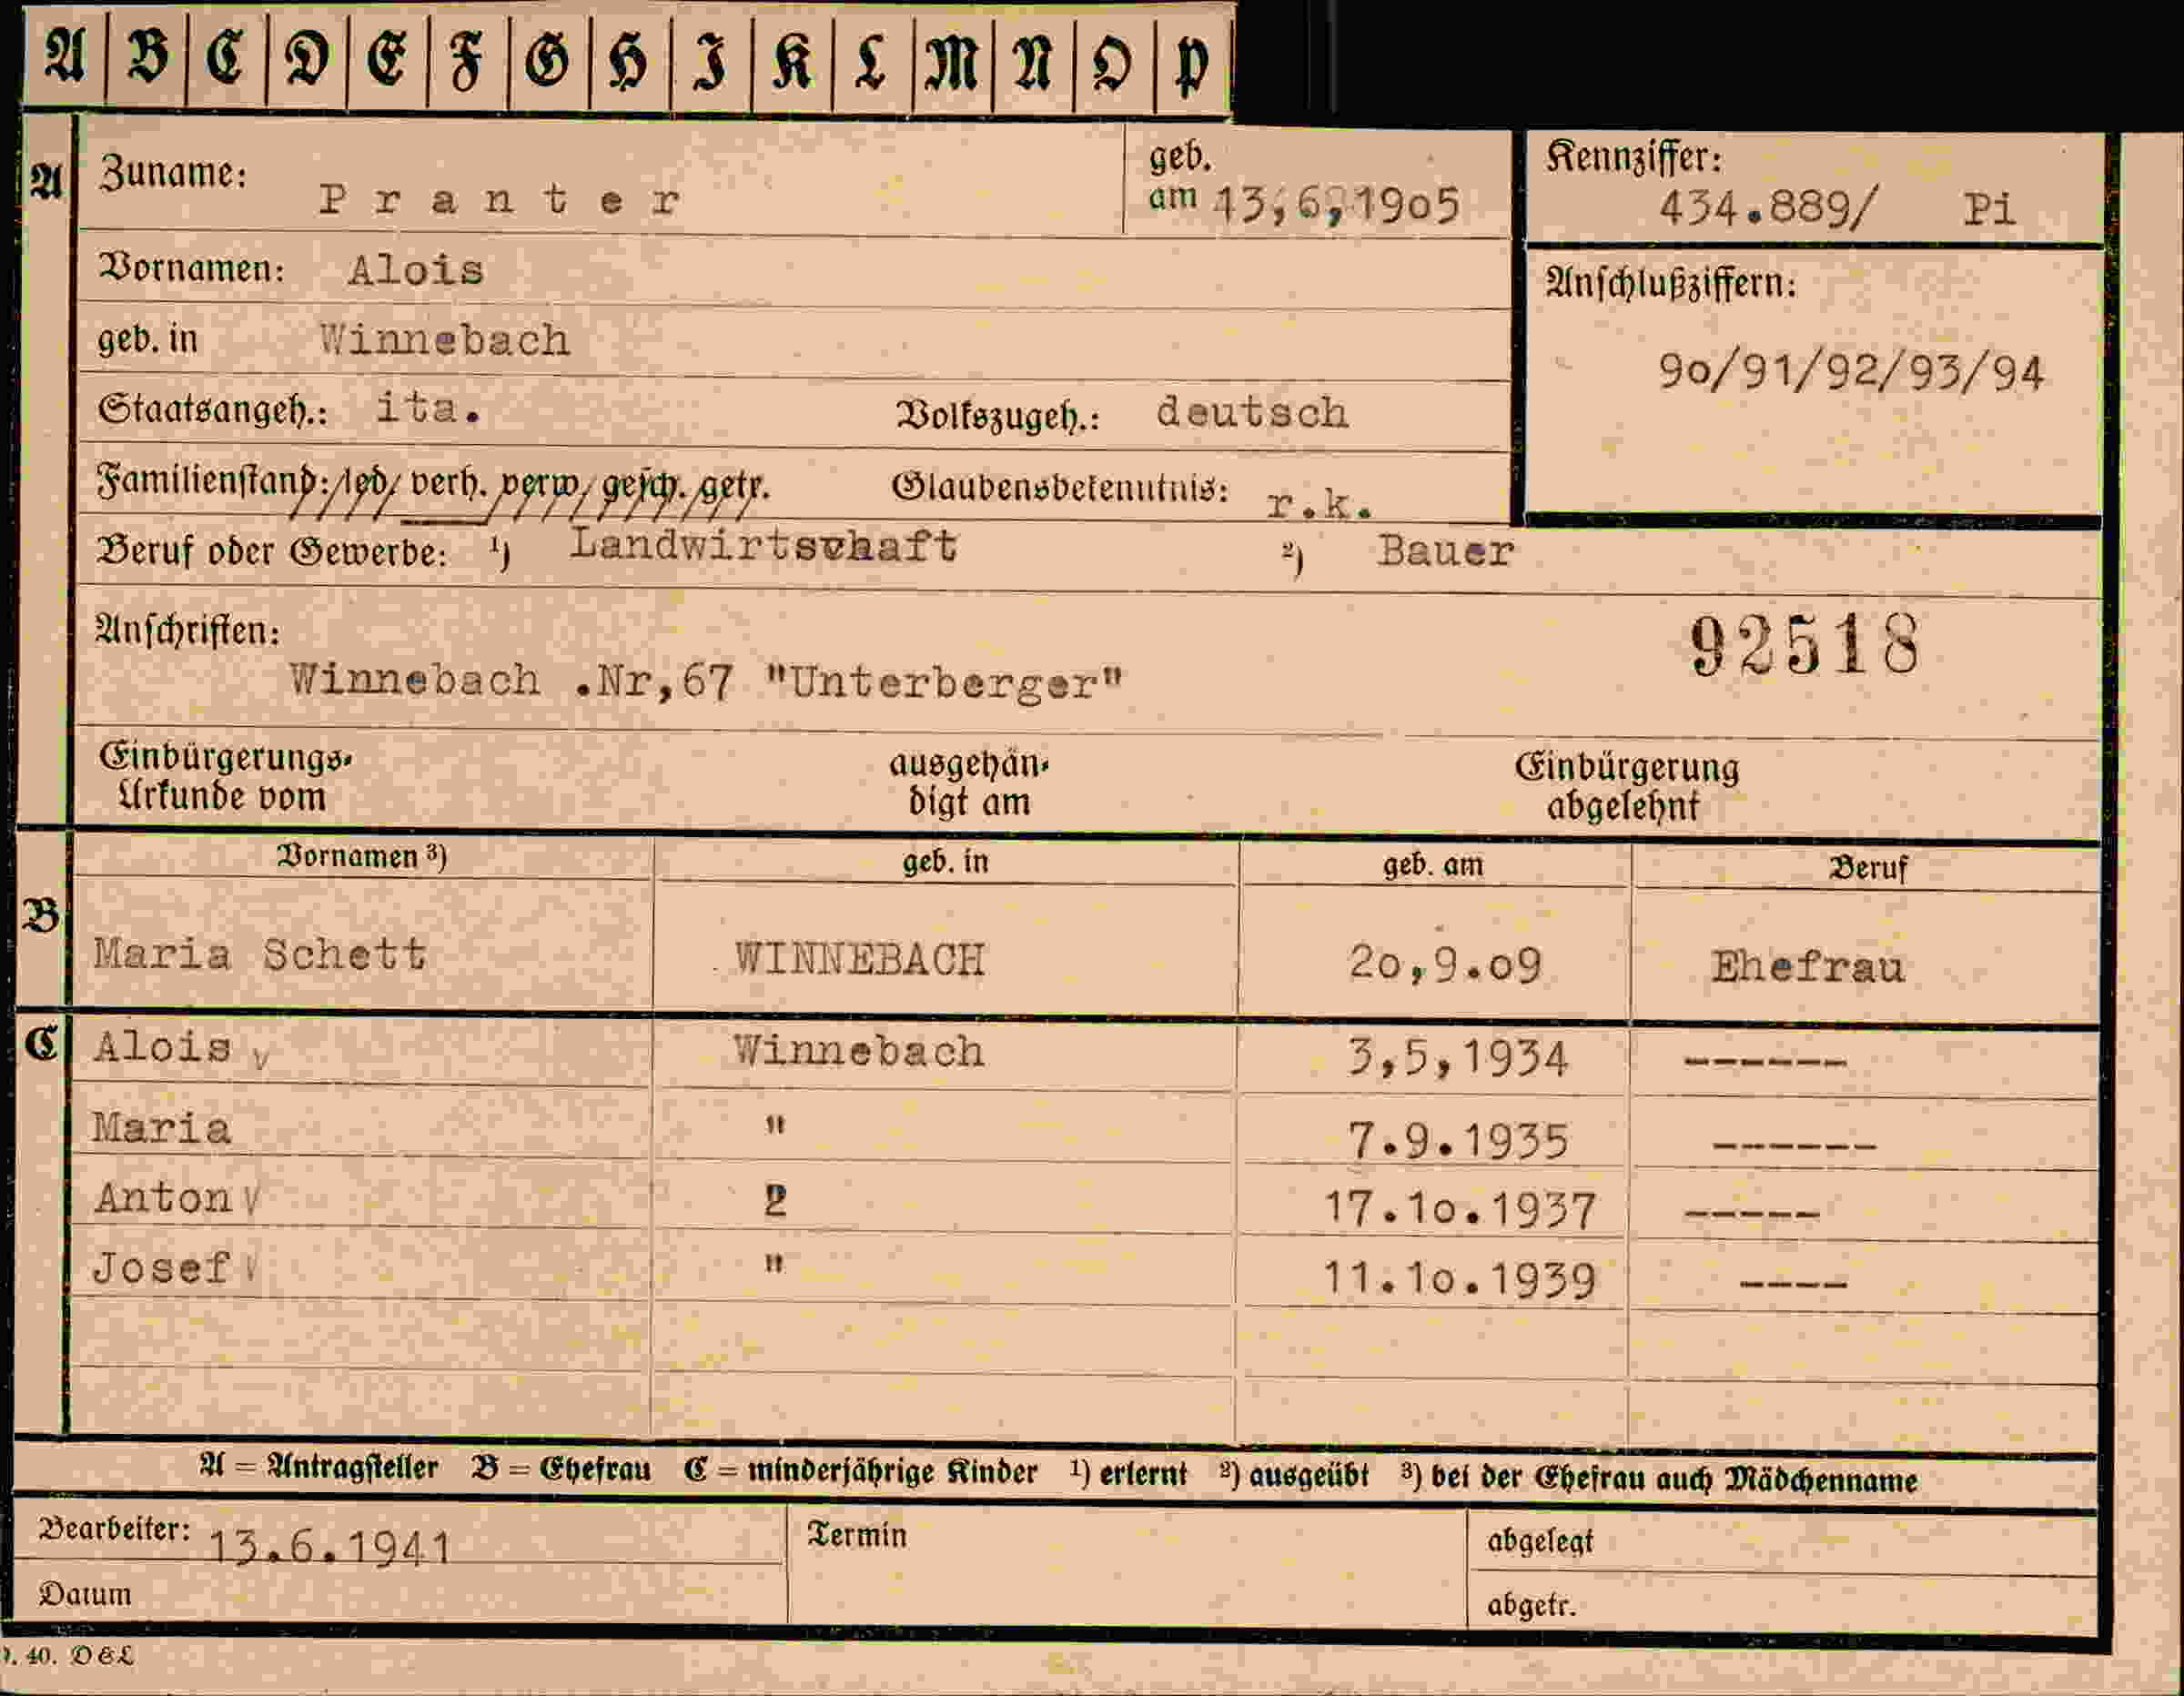 A B C D E F G H I K L M N O P
A Zuname: Pranter geb. am 13,6,1905 Kennziffer: 434.889/ Pi
Vornamen: Alois Anschlußziffern:
geb. in Winnebach 90/91/92/93/94
Staatsangeh.: ita. Volkszugeh.: deutsch
Familienstand: led. verh. verw. gesch. getr. Glaubensbekenntnis: r.k.
Beruf oder Gewerbe: 1) Landwirtschaft 2) Bauer
Anschriften: 92518
Winnebach .Nr,67 "Unterberger"
Einbürgerungs- ausgehän- Einbürgerung
Urkunde vom digt am abgelehnt
Vornamen 3) geb. in geb. am Beruf
B Maria Schett WINNEBACH 20,9.09 Ehefrau
C Alois v Winnebach 3,5,1934 ------
Maria " 7.9.1935 ------
Anton V 2 17.10.1937 -----
Josef V " 11.10.1939 ----
A = Antragsteller B = Ehefrau C = minderjährige Kinder 1) erlernt 2) ausgeübt 3) bei der Ehefrau auch Mädchenname
Bearbeiter: 13.6.1941 Termin abgelegt
Datum abgetr.
40. D&L